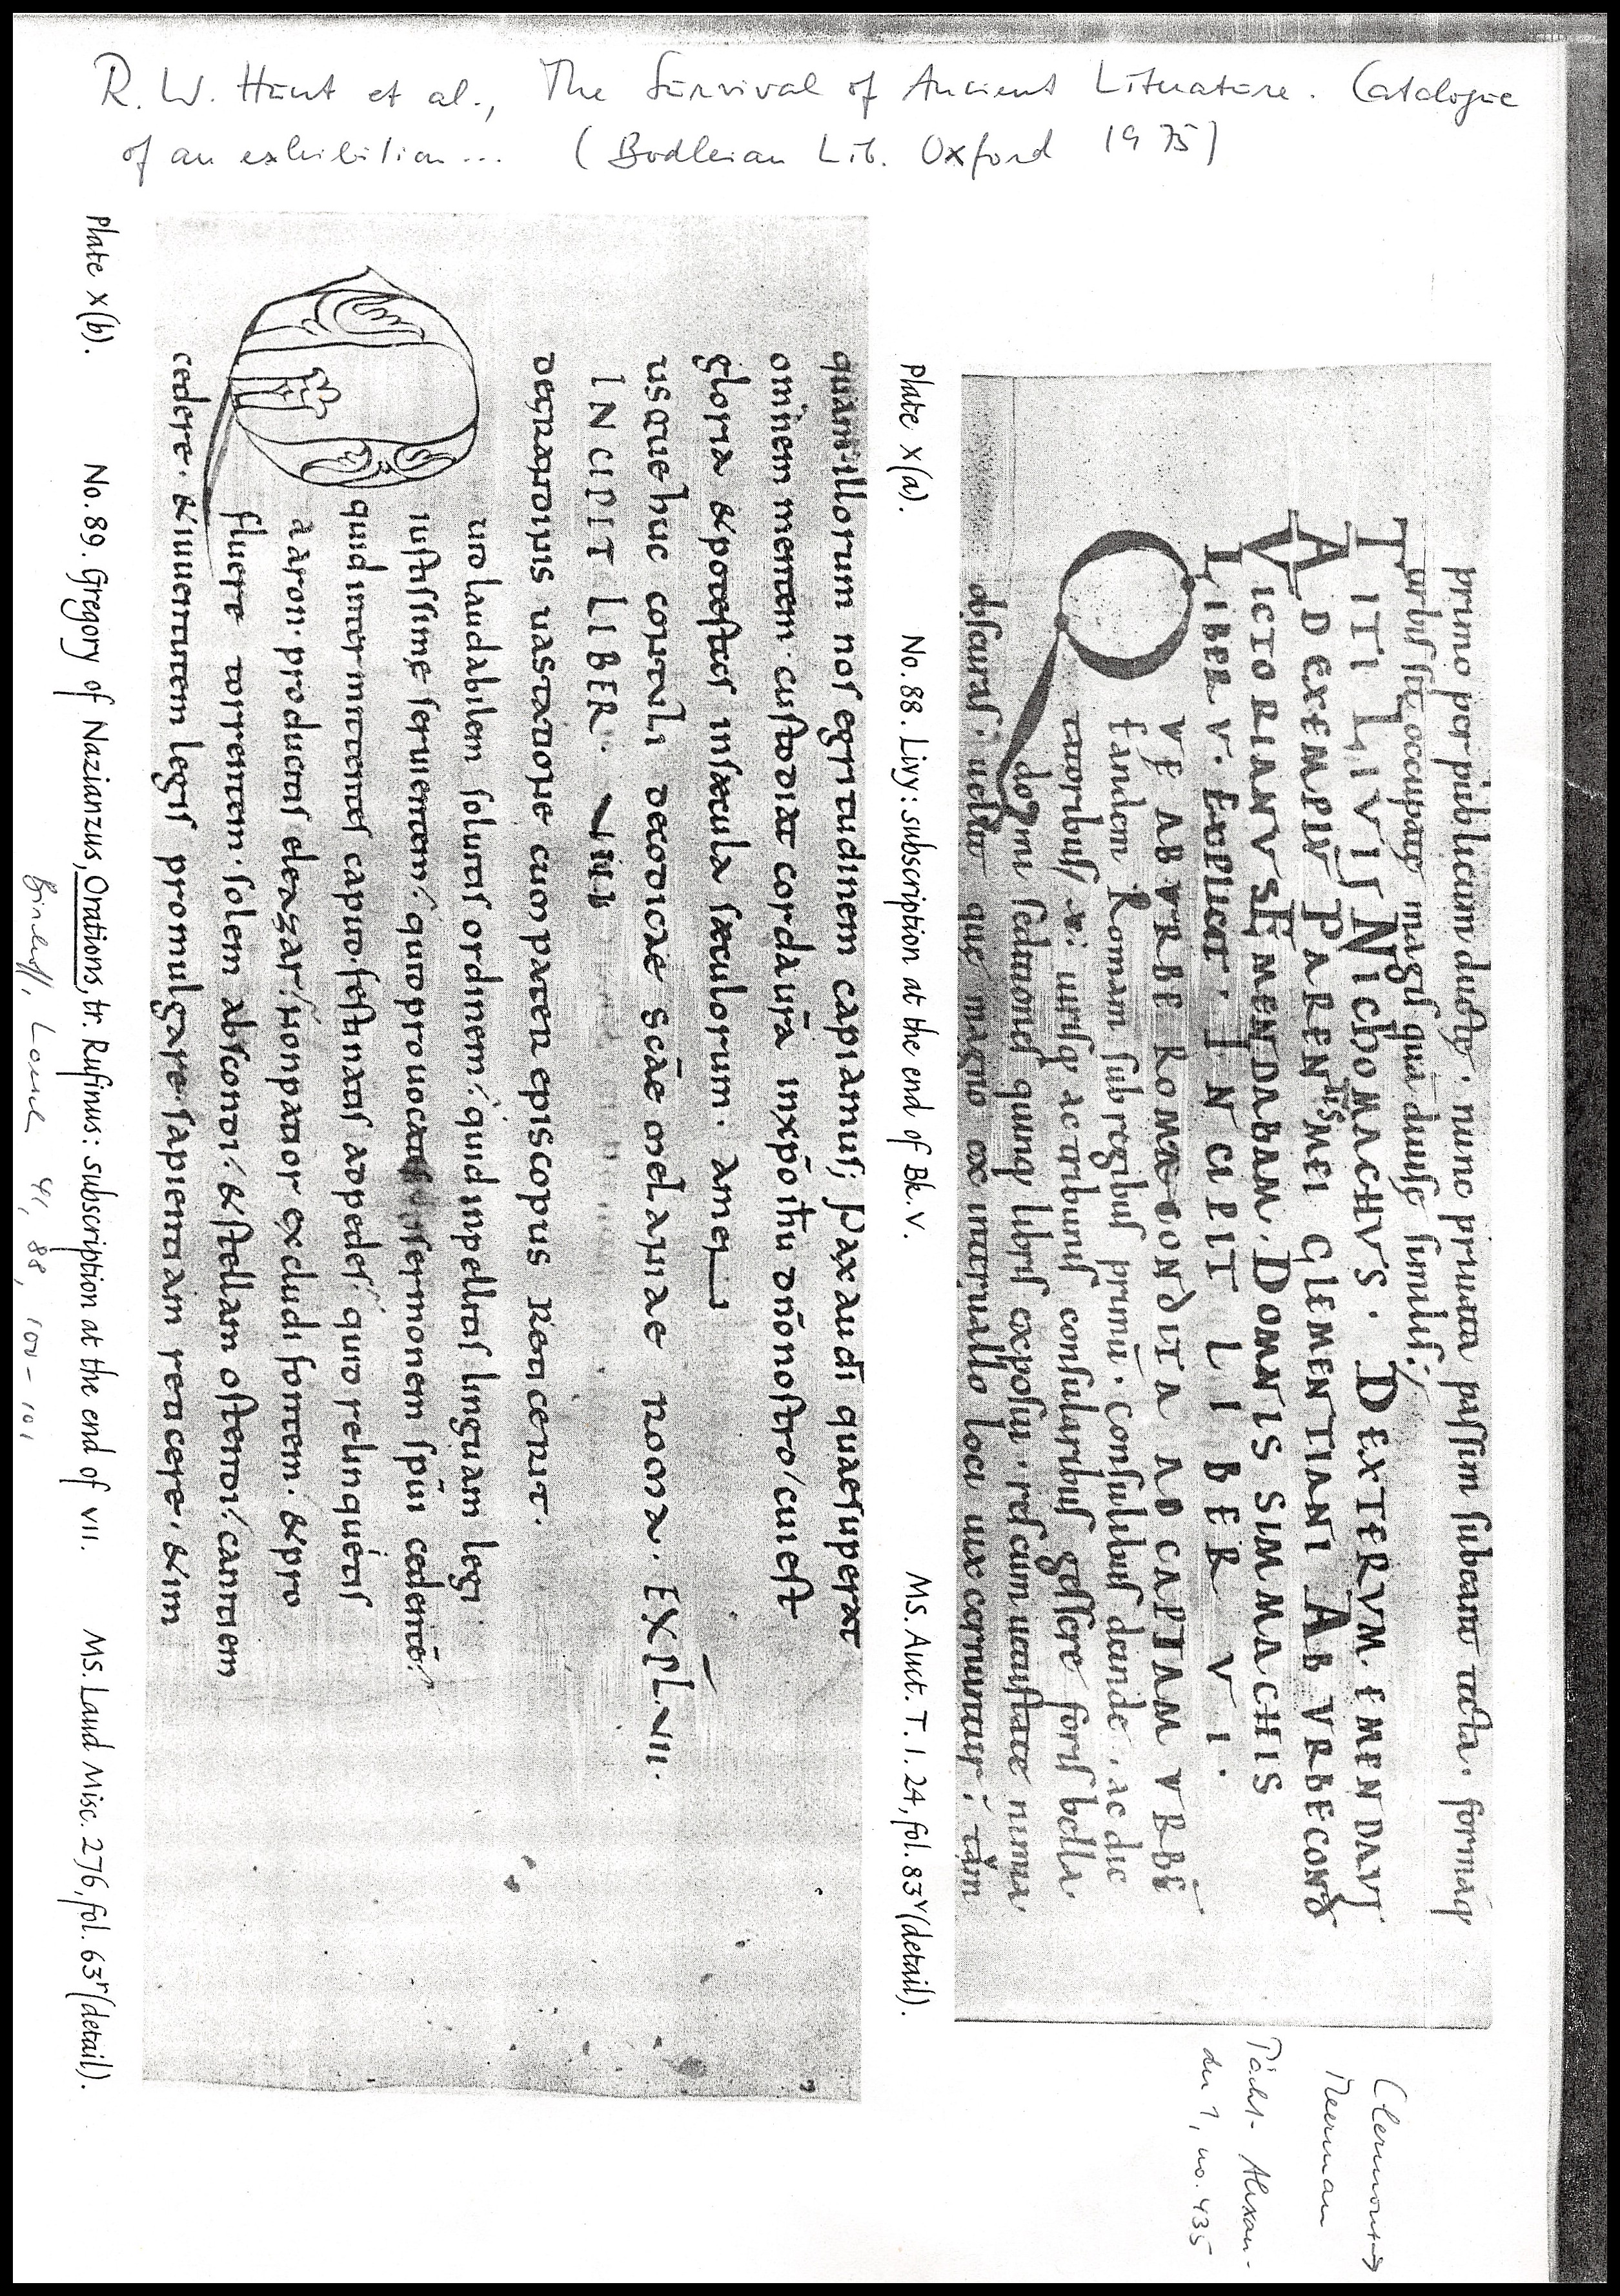 R. W. Hunt et al., The Survival of Ancient Literature. Catalogue
of an exhibition... (Bodleian Lib. Oxford 1975)
primo per publicum ductę. nunc priuata passim subeant tecta. formaq;
urbis sit occupatę magis quã diuisę similis:
TITI LIVII NICHOMACHVS. DEXTERVM. EMENDAVI
AD EXEMPLVͫ PARENTIS MEI CLEMENTIANI AB VRBE COND
VICTORIANVS EMENDABAM. DOMNIS SIMMACHIS
LIBER V. EXPLICIT. INCIPIT LIBER VI.
QVE AB VRBE ROMA CONDITA AD CAPTAM VRBĒ
eandem Romam sub regibus primũ. consulibus deinde. ac dic
tatoribus xẽ uirisq; ac tribunis consularibus gessere foris bella.
domi seditiones quinq; libris exposui. res cum uetustate nimia
obscuras. uelut que magno ex interuallo loci uix cernuntur: tām
Plate X(a). No. 88. Livy: subscription at the end of Bk. V. MS. Auct. T. 1. 24, fol. 83ᵛ (detail).
Clermont →
Meerman
Pächt-Alexan-
der 1, no. 435
quam illorum nos egritudinem capiamus; Pax au dī quae superat
omnem mentem. custodiat corda ur̄a in xp̄o ihu dn̄o nostro/ cui est
gloria & potestas in saecula saeculorum. amen
usque huc contuli de codice scāe melaniae roma. EXPL̄. VII.
INCIPIT LIBER. VIII
de grandinis uastatione cum pater episcopus reticerit.
Quid laudabilem soluitis ordinem: quid inpellitis linguam legi
iustissime seruientem: quid prouocatis sermonem sp̄ui cedentē:
quid intermittentes capud. festinatis ad pedes: quid relinquentes
aaron. producitis eleazar: non patior excludi fontem. & pro
fluere torrentem. solem abscondi: & stellam ostendi: canitiem
cedere. & iuuentutem legis promulgare. sapientiam retacere. & im
Plate X(b). No. 89. Gregory of Nazianzus, Orations, tr. Rufinus: subscription at the end of VII. MS. Laud Misc. 276, fol. 63ʳ (detail).
Bischoff, Lorsch 41, 88, 100-101